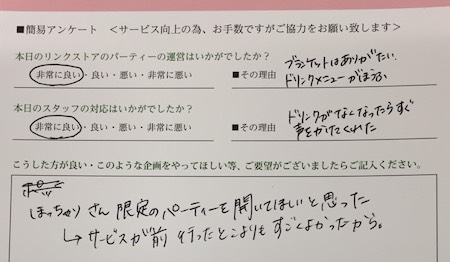 ■簡易アンケート　＜サービス向上の為、お手数ですがご協力をお願い致します＞
本日のリンクストアのパーティーの運営はいかがでしたか？
非常に良い・良い・悪い・非常に悪い
■その理由
ブランケットはありがたい。
ドリンクメニューがほうふ
本日のスタッフの対応はいかがでしたか？
非常に良い・良い・悪い・非常に悪い
■その理由
ドリンクがなくなったらすぐ
声をかけてくれた
こうした方が良い・このような企画をやってほしい等、ご要望がございましたらご記入ください。
ぽっちゃりさん限定のパーティーを開いてほしいと思った
↳サービスが前行ったとこよりもすごくよかったから。